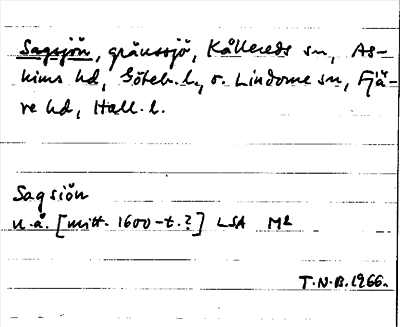 Sagsjön, gränssjö, Kållereds sn, As-
kims hd, Göteb. l., o. Lindome sn, Fjä-
re hd, Hall. l.
Sagsiön
u.å. [mitt. 1600-t.?] LSA M2
T.N.B. 1966.